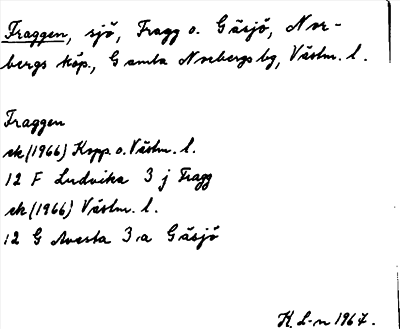 Fraggen, sjö, Fragg o. Gäsjö, Nor-
bergs köp., Gamla Norbergs bg, Västm. l.
Fraggen
ek (1966) Kopp. o. Västm. l.
12 F Ludvika 3 j Fragg
ek (1966) Västm. l.
12 G Avesta 3 a Gäsjö
K. L-n 1967.